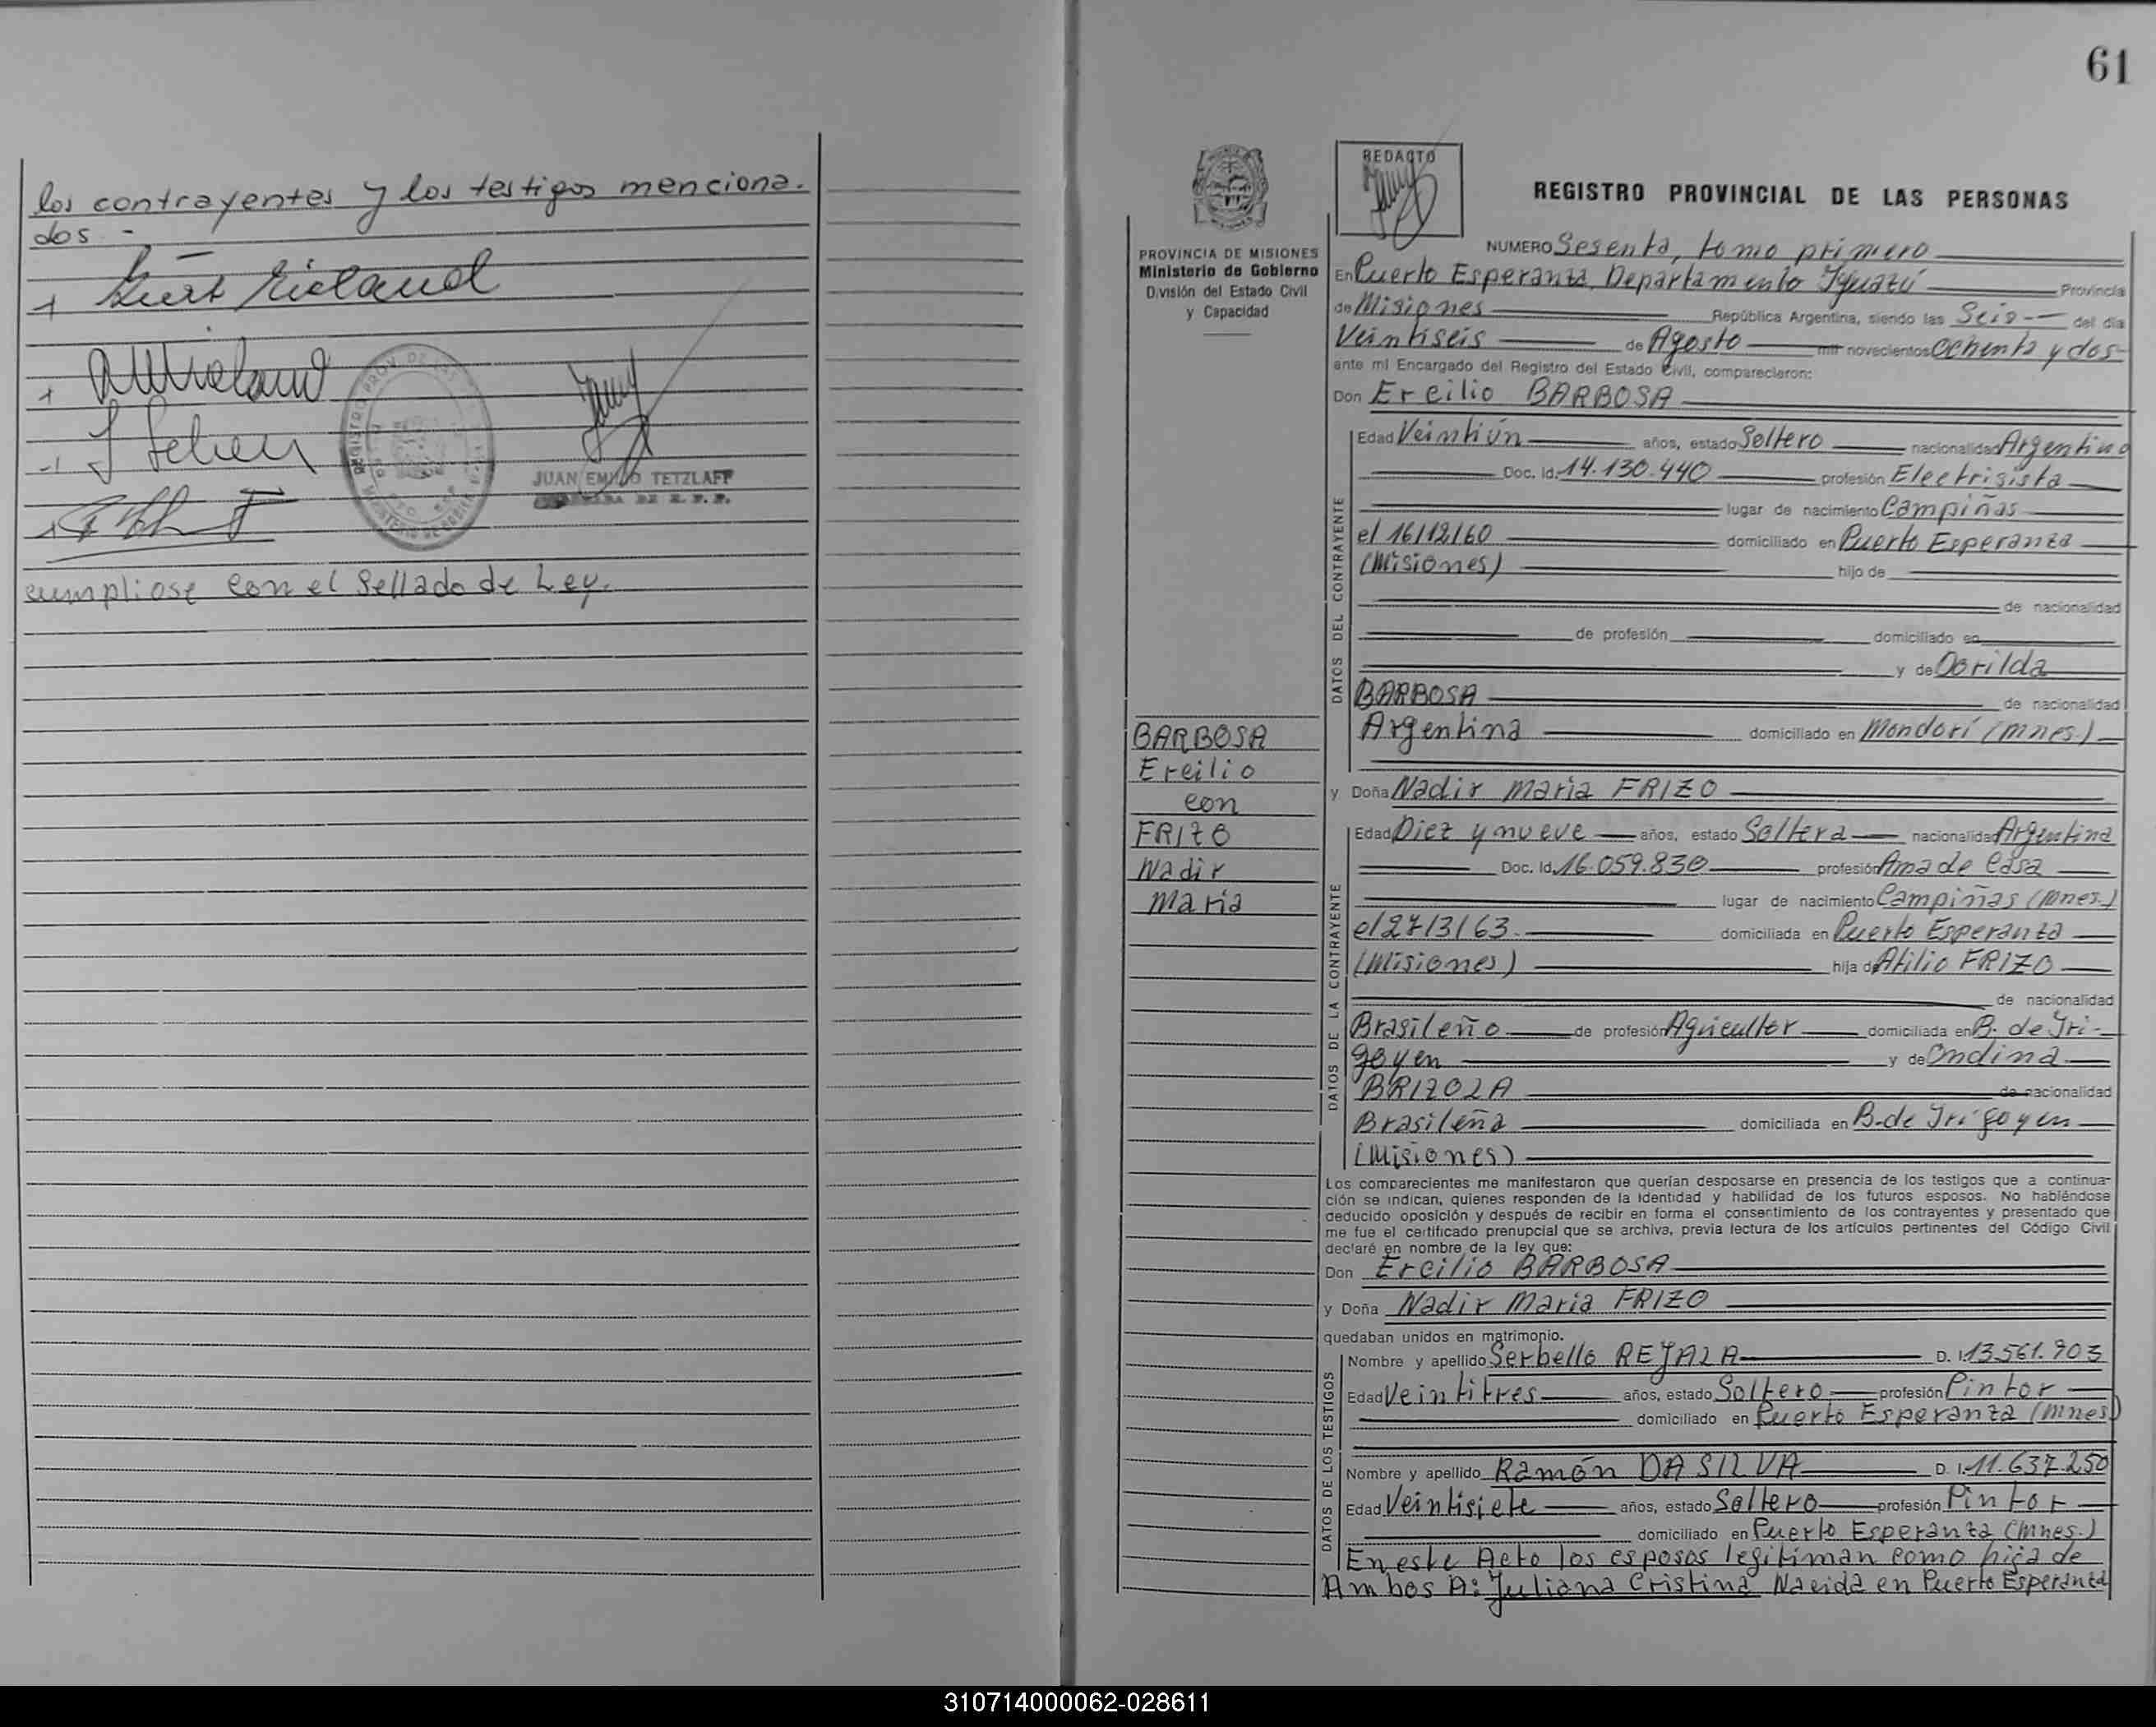 los contrayentes y los testigos menciona-
dos -
JUAN EMILIO TETZLAFF
cumpliose con el Sellado de Ley.
61
REDACTO
REGISTRO PROVINCIAL DE LAS PERSONAS
PROVINCIA DE MISIONES
Ministerio de Gobierno
División del Estado Civil
y Capacidad
BARBOSA
Ercilio
con
FRIZO
Nadir
Maria
NUMERO Sesenta, tomo primero
En Puerto Esperanza, Departamento Yguazú Provincia
de Misiones República Argentina, siendo las Seis del día
Veintiseis de Agosto mil novecientos Ochenta y dos
ante mi Encargado del Registro del Estado Civil, comparecieron:
Don Ercilio BARBOSA
DATOS DEL CONTRAYENTE
Edad Veintiún años, estado Soltero nacionalidad Argentino
Doc. Id. 14.130.440 profesión Electrisista
lugar de nacimiento Campiñas
el 16/12/60 domiciliado en Puerto Esperanza
(Misiones) hijo de
de nacionalidad
de profesión domiciliado en
y de Dorilda
BARBOSA de nacionalidad
Argentina domiciliado en Mondorí (mnes.)
y Doña Nadir Maria FRIZO
DATOS DE LA CONTRAYENTE
Edad Diez y nueve años, estado Soltera nacionalidad Argentina
Doc. Id. 16.059.830 profesión Ama de Casa
lugar de nacimiento Campiñas (Mnes.)
el 27/3/63. domiciliada en Puerto Esperanza
(Misiones) hija de Atilio FRIZO
de nacionalidad
Brasileño de profesión Agricultor domiciliada en B. de Yri-
goyen y de Ondina
BRIZOLA de nacionalidad
Brasileña domiciliada en B. de Yrigoyen
(Misiones)
Los comparecientes me manifestaron que querían desposarse en presencia de los testigos que a continua-
ción se indican, quienes responden de la identidad y habilidad de los futuros esposos. No habiéndose
deducido oposición y después de recibir en forma el consentimiento de los contrayentes y presentado que
me fue el certificado prenupcial que se archiva, previa lectura de los artículos pertinentes del Código Civil
declaré en nombre de la ley que:
Don Ercilio BARBOSA
y Doña Nadir Maria FRIZO
quedaban unidos en matrimonio.
DATOS DE LOS TESTIGOS
Nombre y apellido Serbello REJALA D. I. 13.561.903
Edad Veintitres años, estado Soltero profesión Pintor
domiciliado en Puerto Esperanza (Mnes)
Nombre y apellido Ramón DA SILVA D. I. 11.637.250
Edad Veintisiete años, estado Soltero profesión Pintor
domiciliado en Puerto Esperanza (Mnes.)
En este Acto los esposos legitiman como hija de
Ambos A: Juliana Cristina Nacida en Puerto Esperanza
310714000062-028611